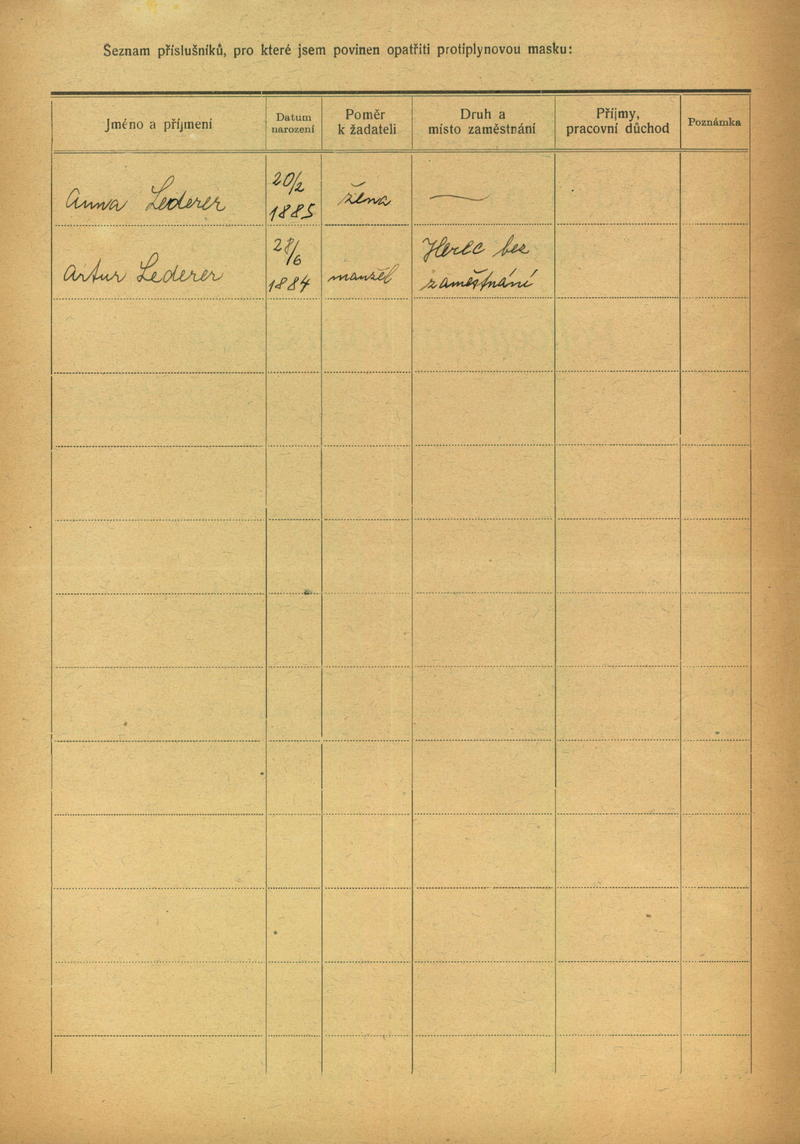 Seznam příslušníků, pro které jsem povinen opatřiti protiplynovou masku:
Jméno a příjmení
Datum
narození
Poměr
k žadateli
Druh a
místo zaměstnání
Příjmy,
pracovní důchod
Poznámka
Anna Lederer
20/2
1885
žena
Artur Lederer
1884
manžel
Herec bez
zaměstnání